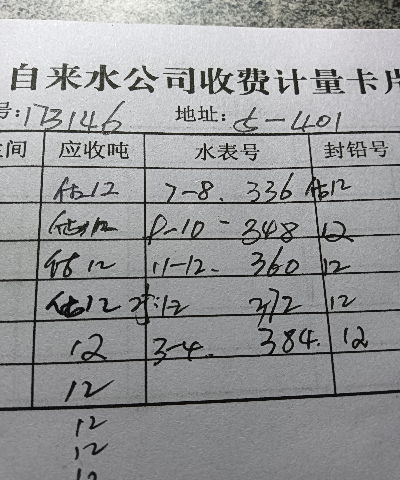 自来水公司收费计量卡片
号:173146 地址: 5-401
间 应收吨 水表号 封铅号
估12 7-8. 336 估12
估12 8-10- 348 12
估12 11-12. 360 12
估12 :12 372 12
12 3-4. 384. 12
12
12
12
12